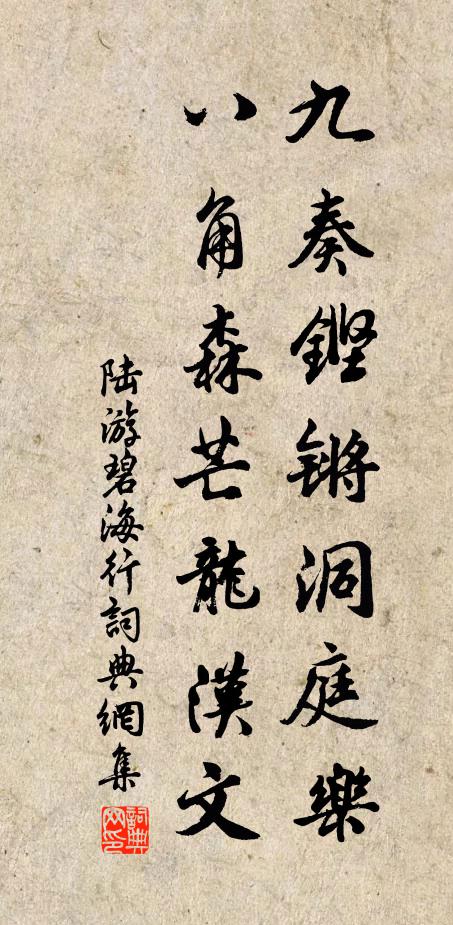 九奏鏗鏘洞庭樂
八角森芒龍漢文
陆游碧海行詞典網集
詞典网印